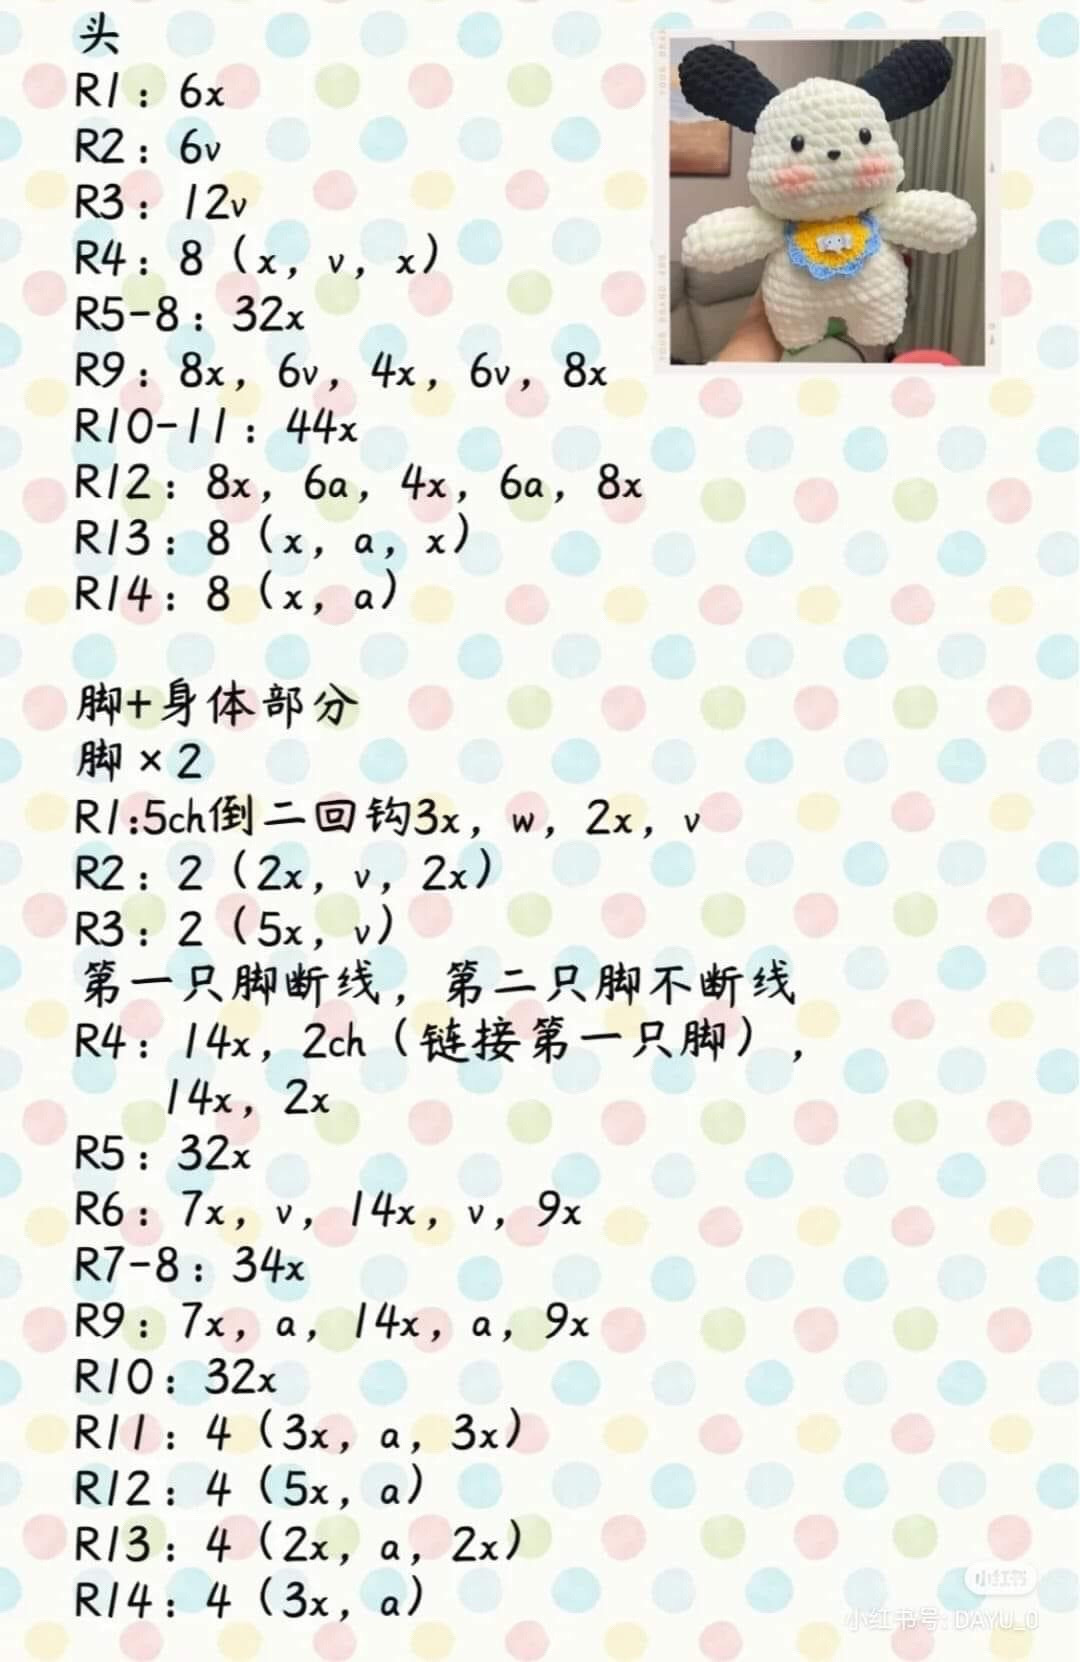 头
R1：6x
R2：6v
R3：12v
R4：8（x，v，x）
R5-8：32x
R9：8x，6v，4x，6v，8x
R10-11：44x
R12：8x，6a，4x，6a，8x
R13：8（x，a，x）
R14：8（x，a）
脚+身体部分
脚×2
R1:5ch倒二回钩3x，w，2x，v
R2：2（2x，v，2x）
R3：2（5x，v）
第一只脚断线，第二只脚不断线
R4：14x，2ch（链接第一只脚），
14x，2x
R5：32x
R6：7x，v，14x，v，9x
R7-8：34x
R9：7x，a，14x，a，9x
R10：32x
R11：4（3x，a，3x）
R12：4（5x，a）
R13：4（2x，a，2x）
R14：4（3x，a）
小红书
小红书号: DAYU_0